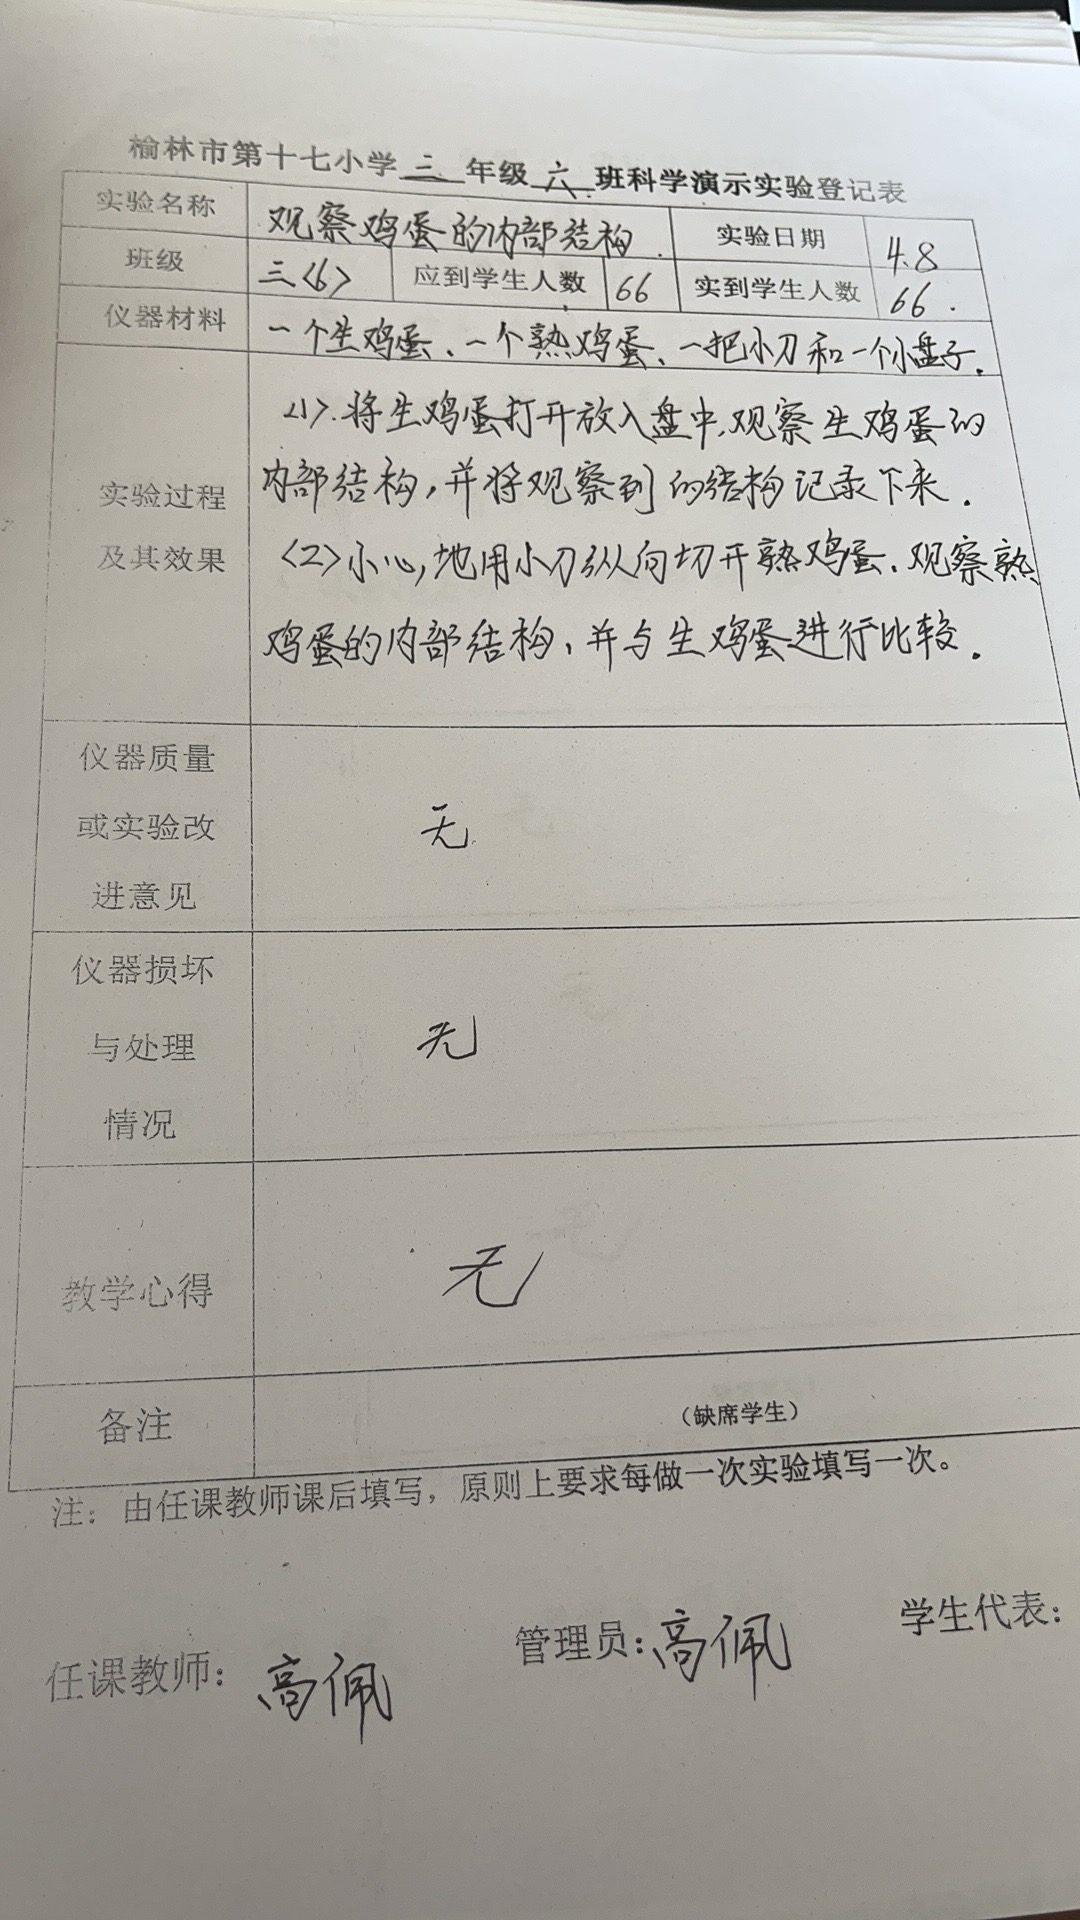 榆林市第十七小学三年级六班科学演示实验登记表
实验名称 观察鸡蛋的内部结构. 实验日期 4.8
班级 三<6> 应到学生人数 66 实到学生人数 66.
仪器材料 一个生鸡蛋、一个熟鸡蛋、一把小刀和一个小盘子.
实验过程
及其效果
<1>.将生鸡蛋打开放入盘中,观察生鸡蛋的
内部结构,并将观察到的结构记录下来.
<2>小心地用小刀纵向切开熟鸡蛋.观察熟
鸡蛋的内部结构,并与生鸡蛋进行比较.
仪器质量
或实验改
进意见
无
仪器损坏
与处理
情况
无
教学心得 无
备注 (缺席学生)
注：由任课教师课后填写，原则上要求每做一次实验填写一次。
任课教师：高佩 管理员：高佩 学生代表：